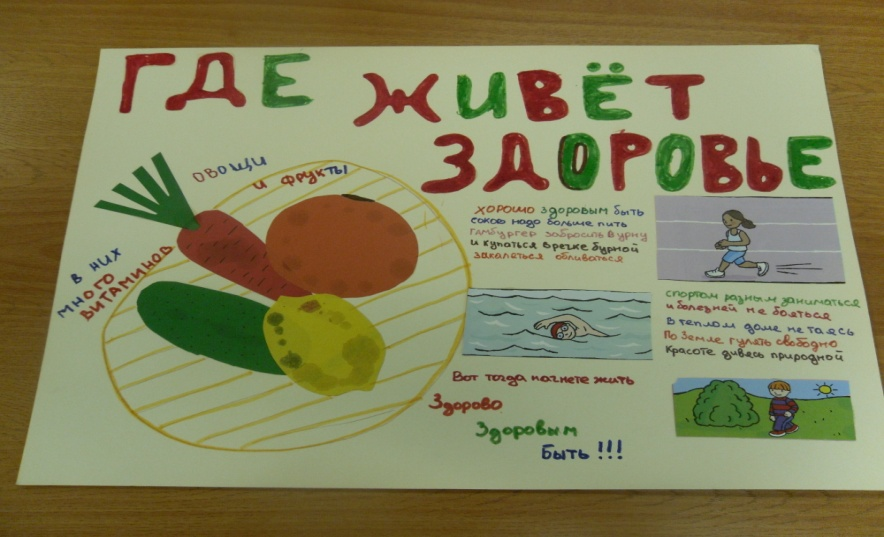 ГДЕ ЖИВЁТ
ЗДОРОВЬЕ
ОВОЩИ
И ФРУКТЫ
В НИХ
МНОГО
ВИТАМИНОВ
ХОРОШО ЗДОРОВЫМ БЫТЬ
СОКОВ НАДО БОЛЬШЕ ПИТЬ
ГАМБУРГЕР ЗАБРОСИТЬ В УРНУ
И КУПАТЬСЯ В РЕЧКЕ БУРНОЙ
ЗАКАЛЯТЬСЯ ОБЛИВАТЬСЯ
СПОРТОМ РАЗНЫМ ЗАНИМАТЬСЯ
И БОЛЕЗНЕЙ НЕ БОЯТЬСЯ
В ТЕПЛОМ ДОМЕ НЕ ТАЯСЬ
ПО ЗЕМЛЕ ГУЛЯТЬ СВОБОДНО
КРАСОТЕ ДИВЯСЬ ПРИРОДНОЙ
Вот тогда начнете жить
Здорово
Здоровым
Быть!!!